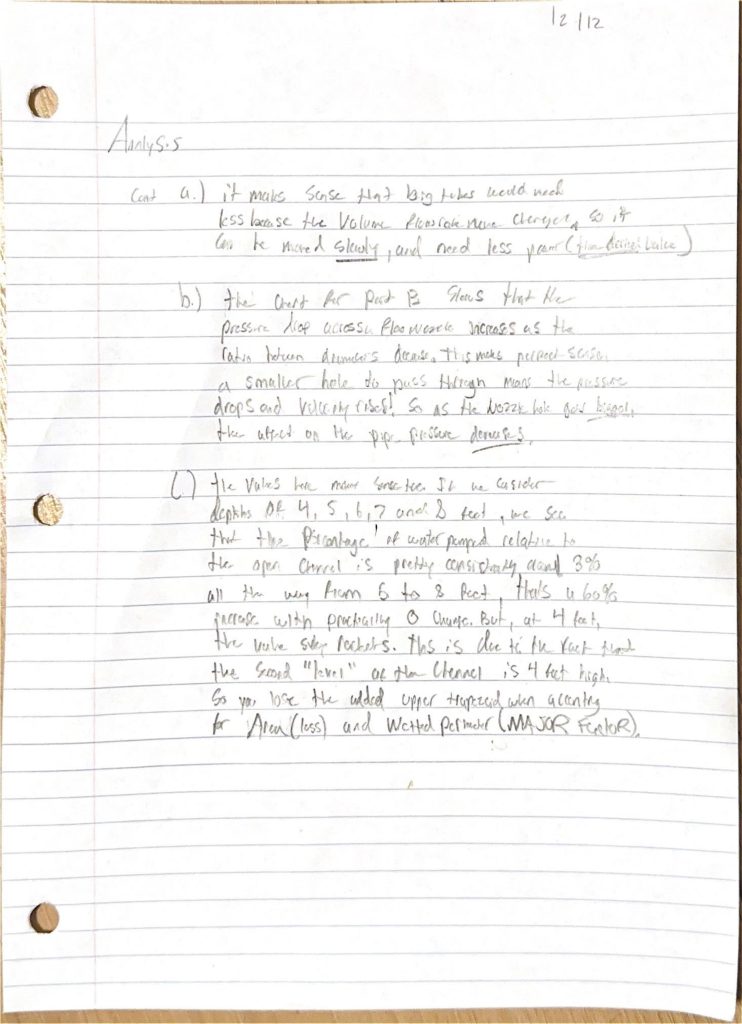 12/12
Analysis
Cont a.) it makes sense that big tubes would need
less because the volume flowrate never changes, so it
can be moved slowly, and need less power (time value)
b.) the chart for part B shows that the
pressure drop across a flownozzle increases as the
ratio between diameters decrease. This makes perfect sense
a smaller hole to pass through means the pressure
drops and velocity rises! So as the Nozzle hole gets bigger,
the effect on the pipe pressure decreases.
C.) the values here make sense too. If we consider
depths of 4, 5, 6, 7 and 8 feet, we see
that the percentage of water pumped relative to
the open channel is pretty consistently around 3%
all the way from 5 to 8 feet, that's a 60%
increase with practically 0 change. But, at 4 feet,
the value rockets. This is due to the fact that
the second "level" of the channel is 4 feet high.
So you lose the added upper trapezoid when accounting
for Area (loss) and Wetted perimeter (MAJOR FACTOR).